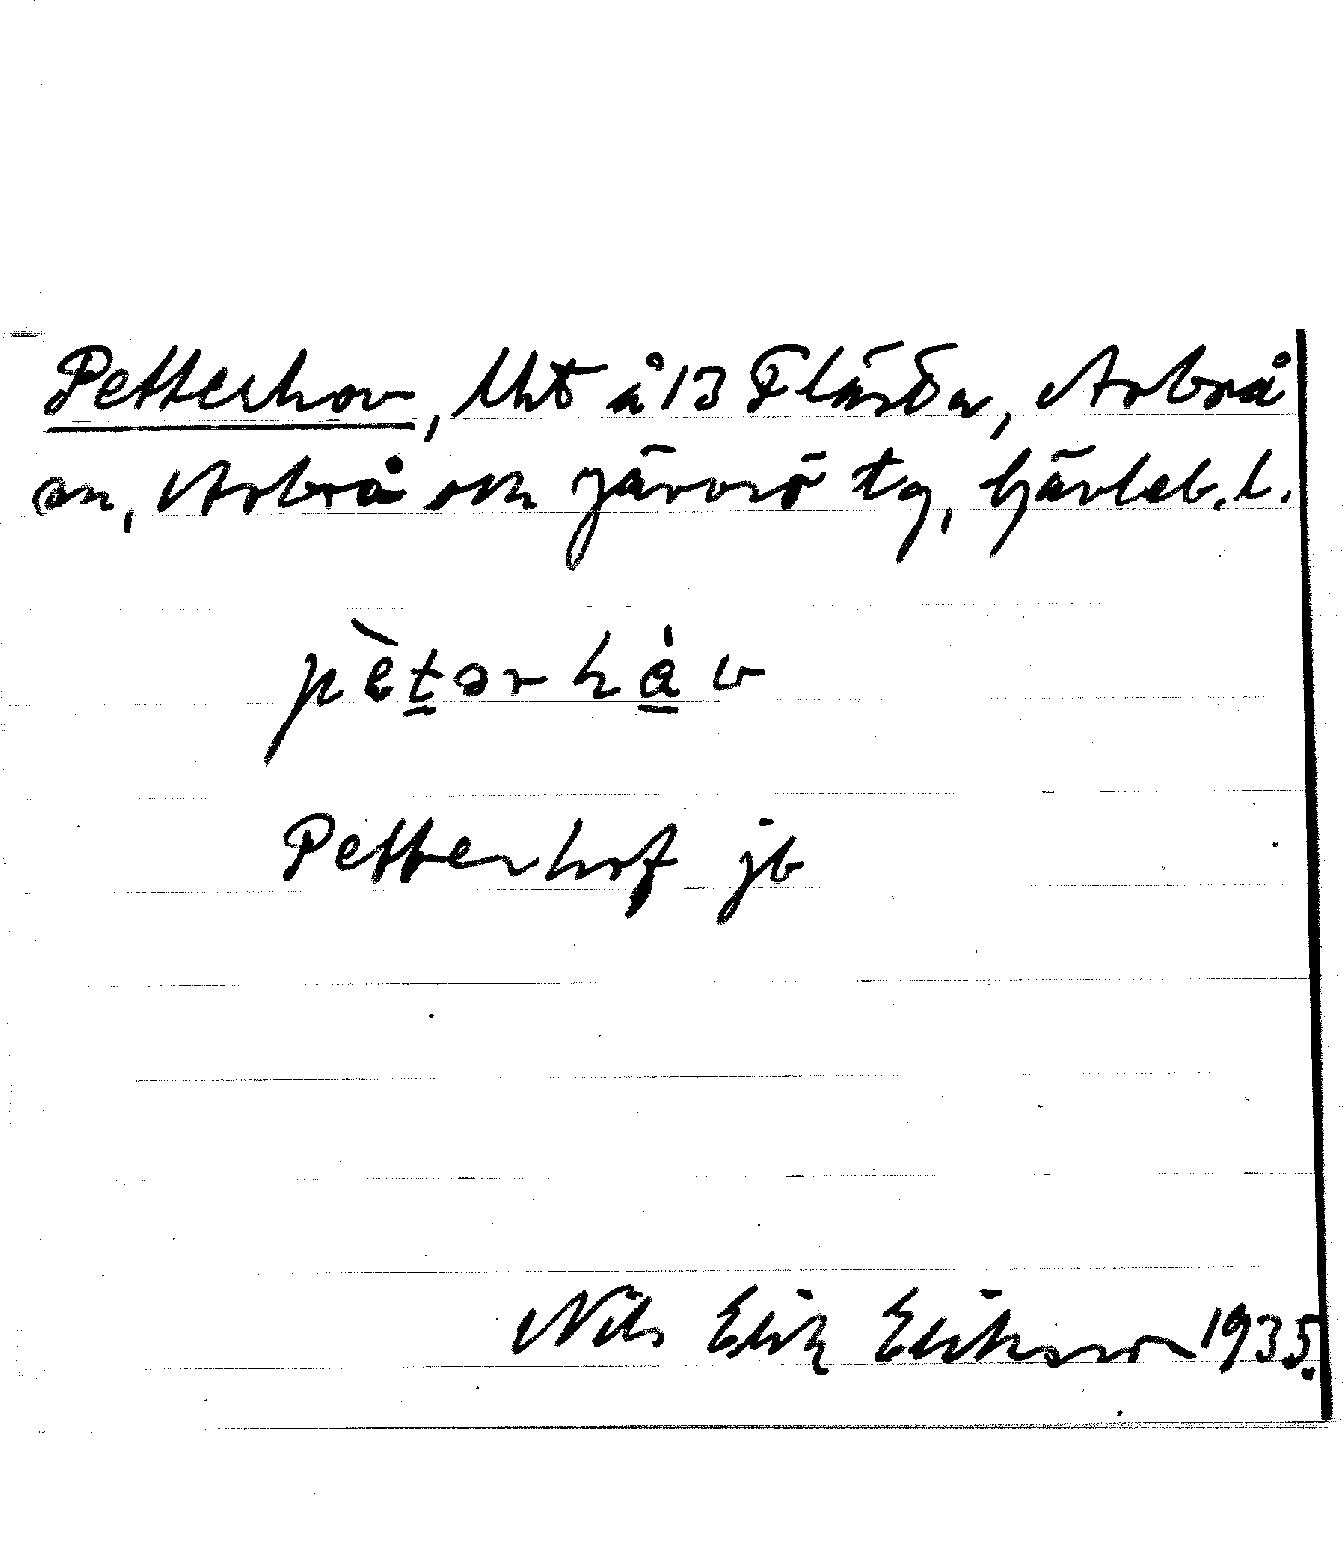 Petterhov, lht å 13 Flästa, Arbrå
sn, Arbrå och Järvsö tg, Gävleb. l.
pètərhàv
Petterhof jb
Nils Erik Eriksson 1935.